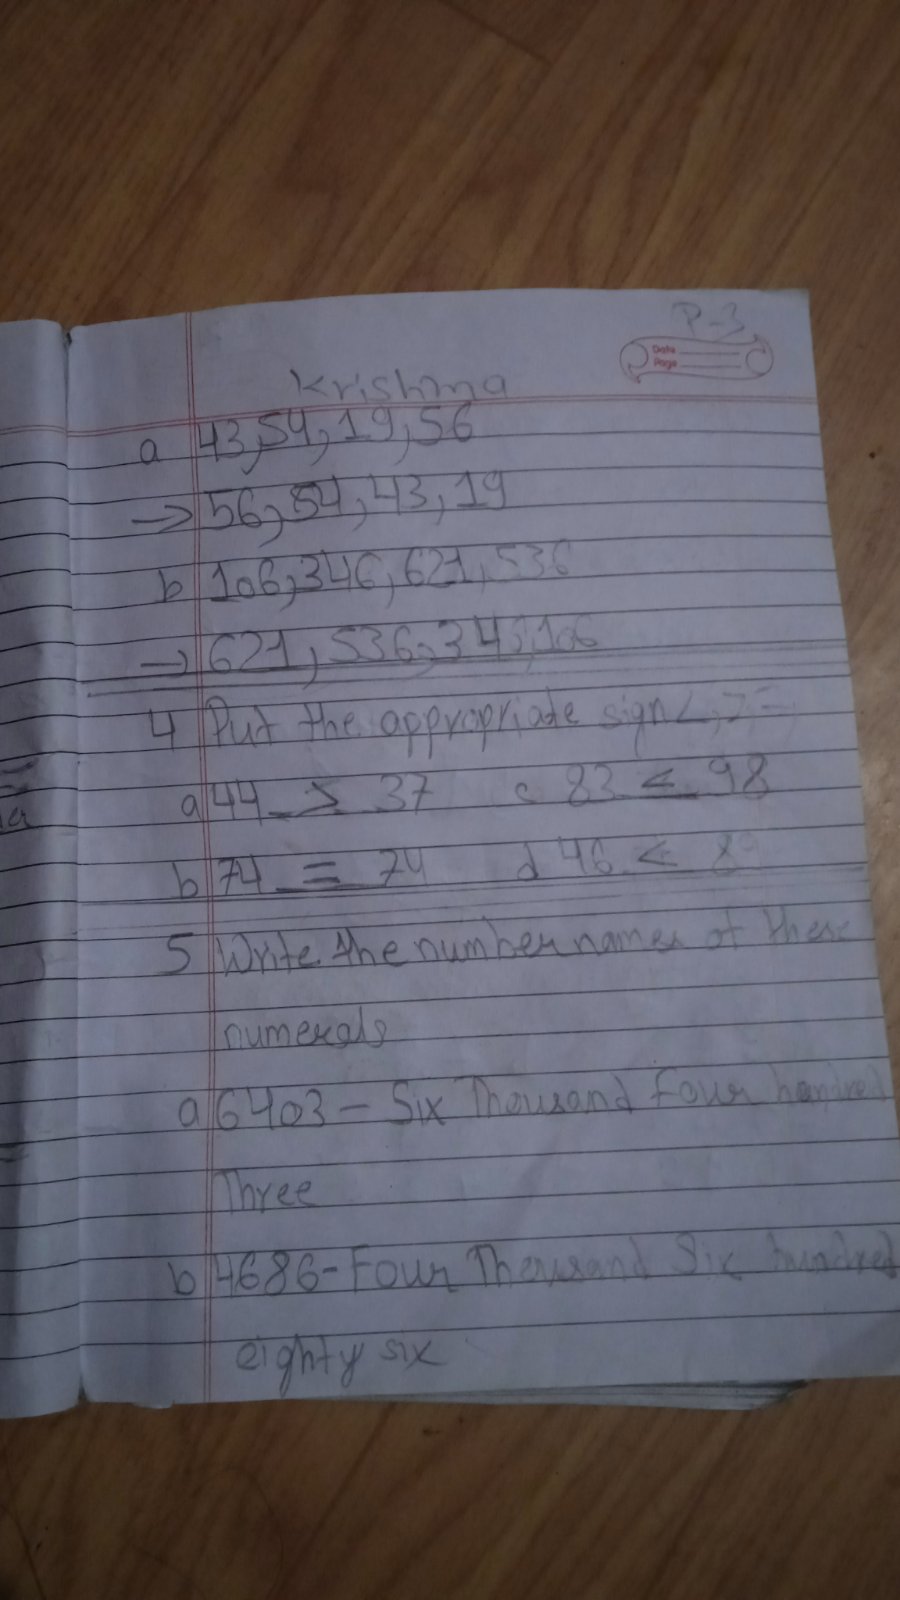 P-3
Date
Page
Krishna
a 43,54,19,56
→ 56,54,43,19
b 106,346,621,536
→ 621,536,343,106
4 Put the appropriate sign <,>,=
a 44 > 37 c 83 < 98
b 74 = 74 d 46 <
5 Write the number names of these
numerals
a 6403 - Six Thousand Four hundred
Three
b 4686 - Four Thousand Six hundred
eighty six